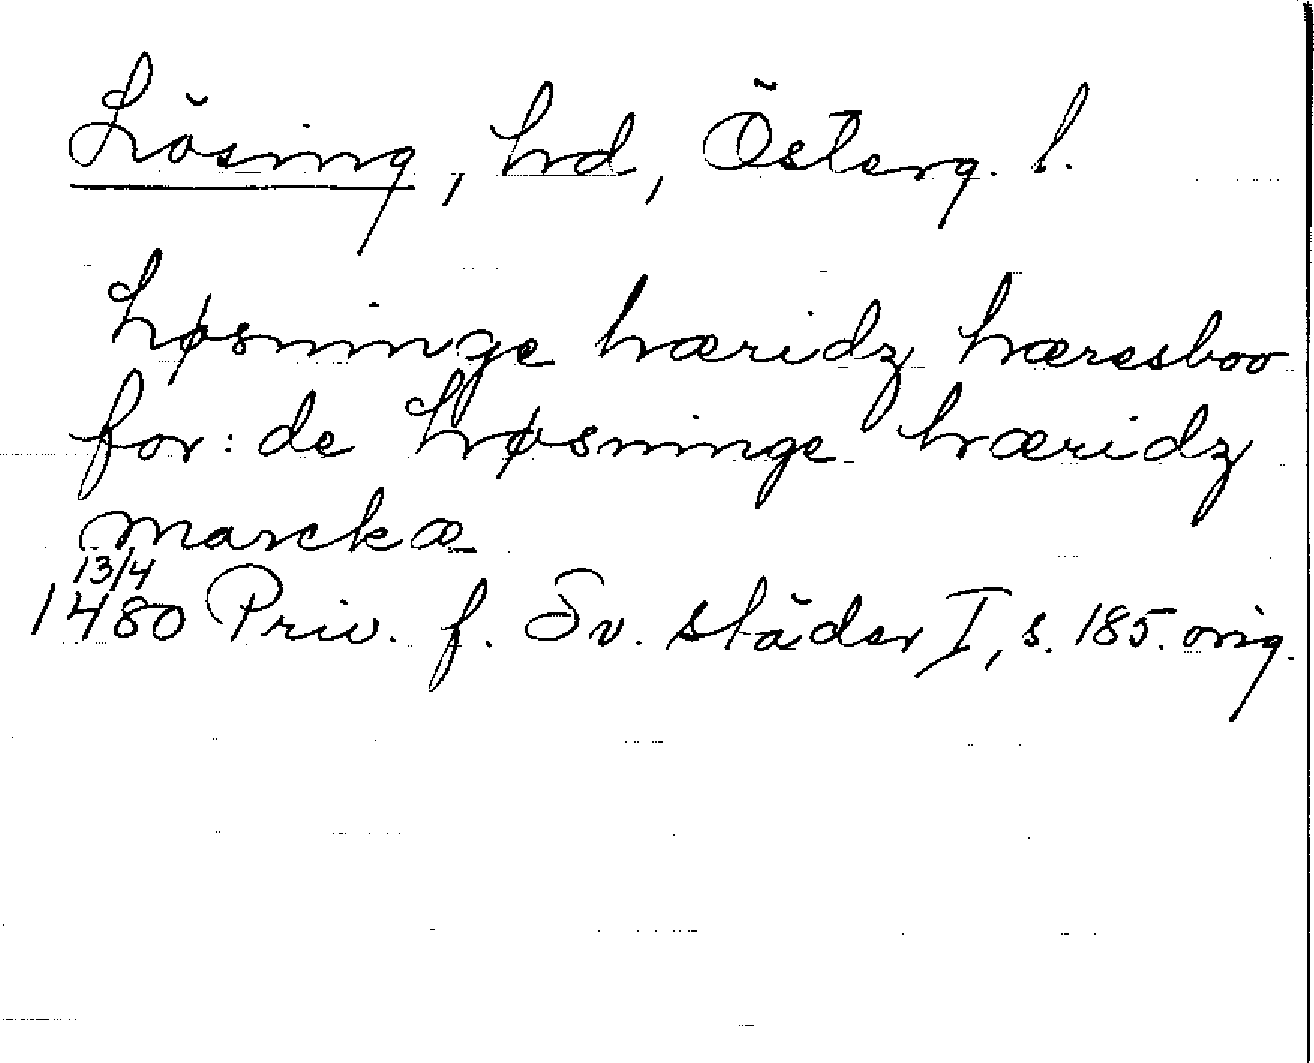 Lösing, hd, Österg. l.
Løsninge hæridz hæresboo
for: de Løsninge hæridz
marckæ
13/4
1480 Priv. f. Sv. städer I, s. 185. orig.